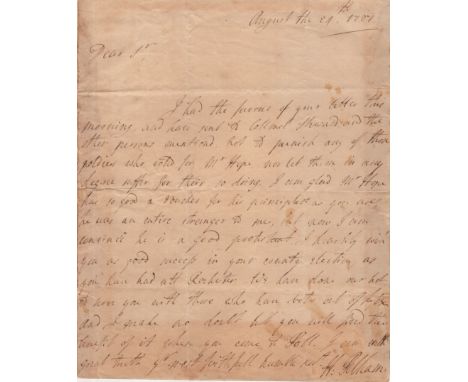 August the 24th. 1727
Dear Sr
I had the favour of your letter this
morning and have sent to Collonel and the
other persons mentiond not to punish any of those
soldiers who voted for Mr Hope nor let them in any
degree suffer for their so doing. I am glad Mr Hope
has so good a voucher for his principles as you are,
he was an entire stranger to me, but now I am
convinc'd he is a good protestant, I heartily wish
you as good success in your county election as
you have had att Rochester, have done our best
to serve you with those who have votes out of
and I make no doubt but you will find the
benefit of it when you come to Poll. I am with
great truth yr most faithfull humble servt H: Pelham